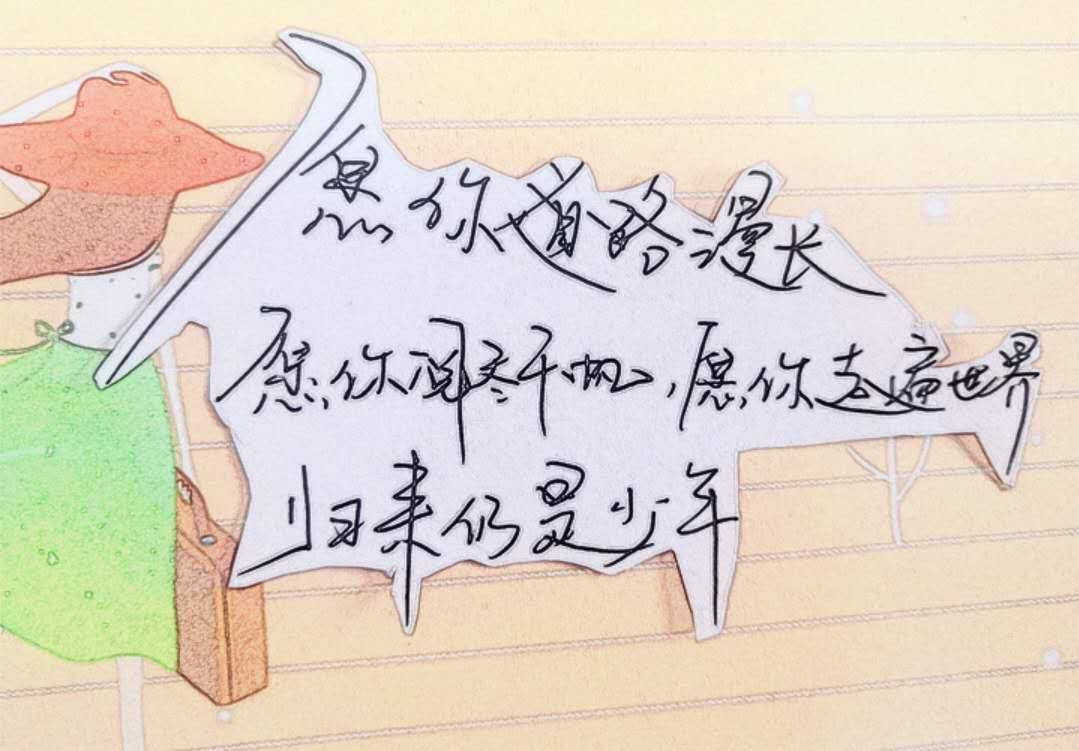 愿你道路漫长
愿你阅尽千帆,愿你走遍世界
归来仍是少年